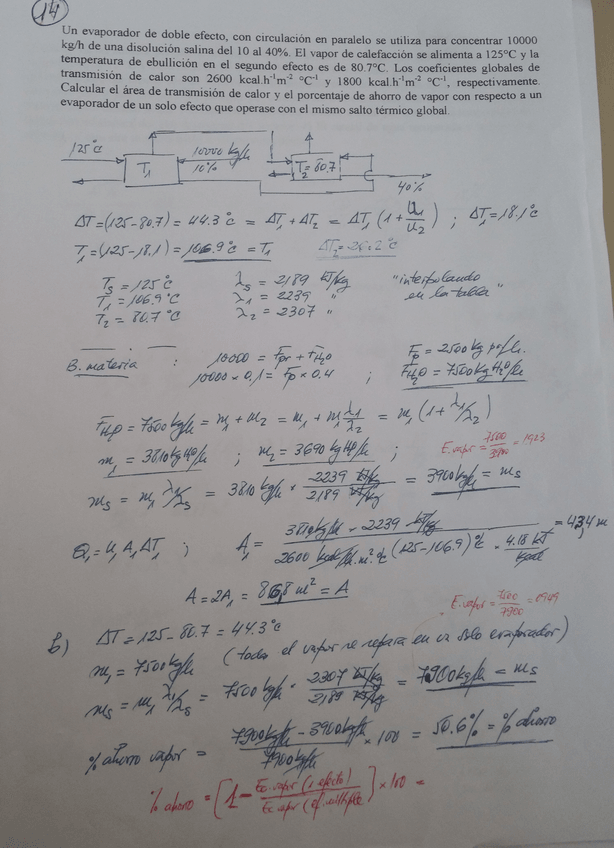 14
Un evaporador de doble efecto, con circulación en paralelo se utiliza para concentrar 10000
kg/h de una disolución salina del 10 al 40%. El vapor de calefacción se alimenta a 125°C y la
temperatura de ebullición en el segundo efecto es de 80.7°C. Los coeficientes globales de
transmisión de calor son 2600 kcal.h⁻¹m⁻² °C⁻¹ y 1800 kcal.h⁻¹m⁻² °C⁻¹, respectivamente.
Calcular el área de transmisión de calor y el porcentaje de ahorro de vapor con respecto a un
evaporador de un solo efecto que operase con el mismo salto térmico global.
125°C T₁ 10000 kg/h 10% T₂ = 80.7 40%
ΔT = (125-80.7) = 44.3°C = ΔT₁ + ΔT₂ = ΔT₁ (1 + U₁/U₂) ; ΔT₁ = 18.1°C
T₁ = (125-18.1) = 106.9°C = T₁ ΔT₂ = 26.2°C
Ts = 125°C λs = 2189 kJ/kg "interpolando
T₁ = 106.9°C λ₁ = 2239 " en la tabla"
T₂ = 80.7°C λ₂ = 2307 "
B. materia : 10000 = Fp + FH₂O Fp = 2500 kg pº/h.
10000 × 0,1 = Fp × 0.4 ; FH₂O = 7500 kg H₂O/h
FH₂O = 7500 kg/h = m₁ + m₂ = m₁ + m₁ λ₁/λ₂ = m₁ (1 + λ₁/λ₂)
m₁ = 3810 kg H₂O/h ; m₂ = 3690 kg H₂O/h ; E. vapor = 7500/3900 = 1923
ms = m₁ λ₁/λs = 3810 kg/h × 2239 kJ/kg / 2189 kJ/kg = 3900 kg/h = ms
Q₁ = U₁ A₁ ΔT₁ ; A₁ = 3810 kg/h × 2239 kJ/kg / 2600 kcal/h.m².°C (125-106.9)°C × 4.18 kJ/kcal = 43,4 m
A = 2A₁ = 86,8 m² = A
E. vapor = 7500/7900 = 0949
b) ΔT = 125 - 80.7 = 44.3°C
m₁ = 7500 kg/h (todo el vapor se separa en un solo evaporador)
ms = m₁ λ₁/λs = 7500 kg/h × 2307 kJ/kg / 2189 kJ/kg = 7900 kg/h = ms
% ahorro vapor = 7900 kg/h - 3900 kg/h / 7900 kg/h × 100 = 50.6% = % ahorro
% ahorro = [1 - Ec. vapor (1 efecto) / Ec. vapor (ef. múltiple)] × 100 =